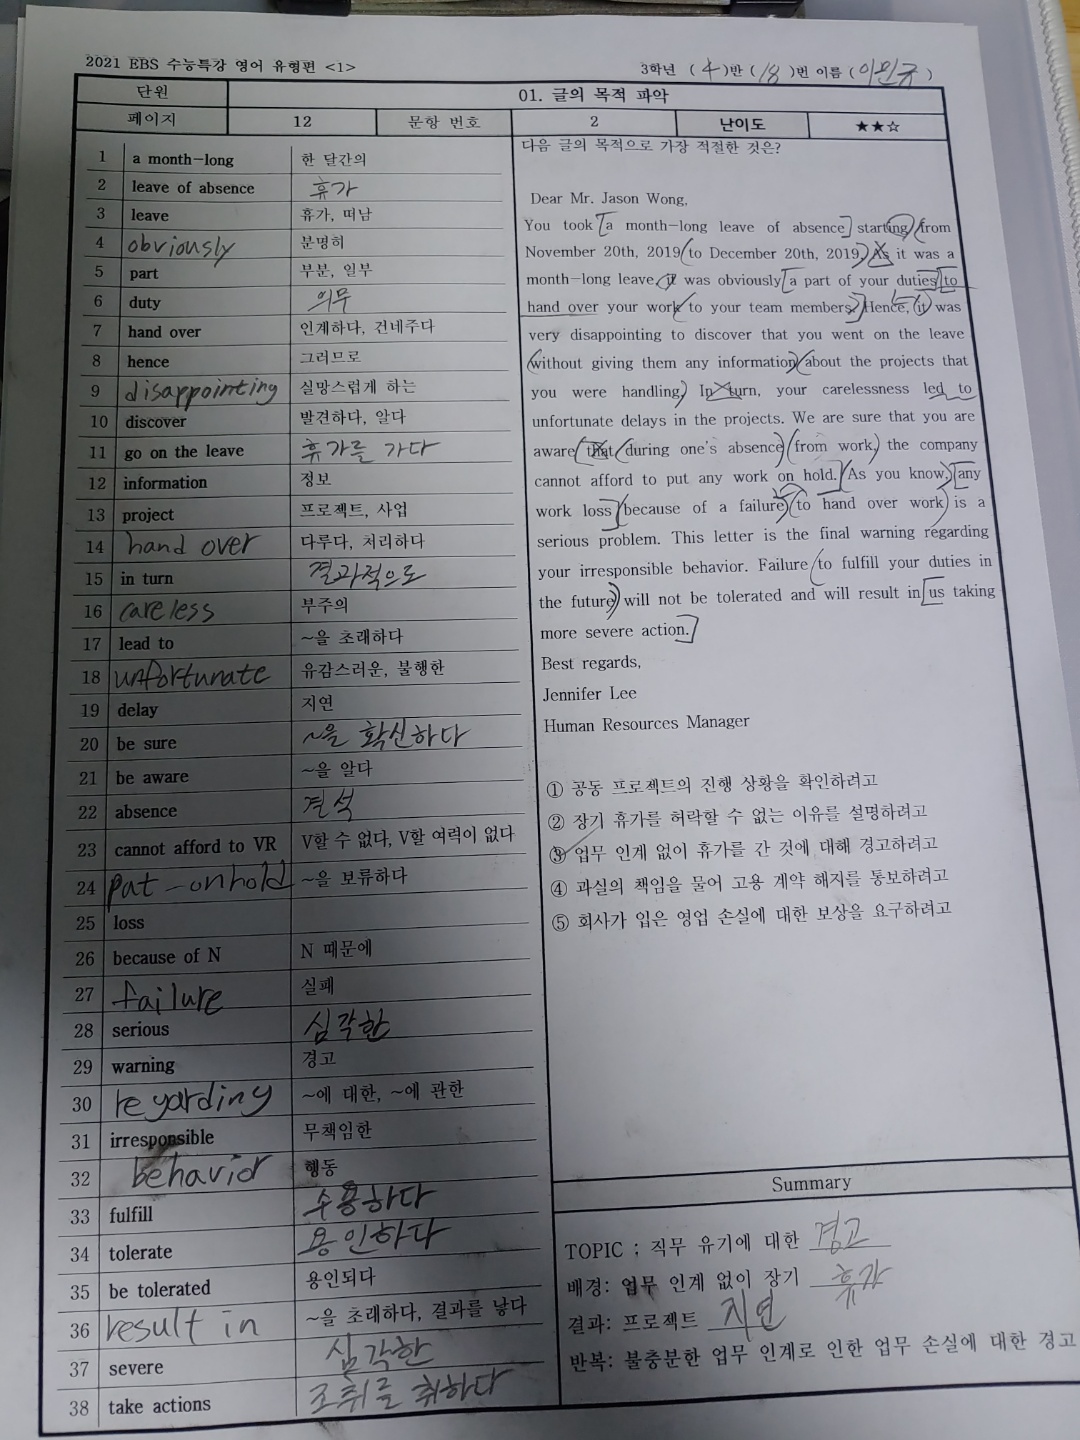 2021 EBS 수능특강 영어 유형편 <1>
3학년 (4)반 (18)번 이름 (이민규)
단원 01. 글의 목적 파악
페이지 12 문항 번호 2 난이도 ★★☆
1 a month-long 한 달간의
2 leave of absence 휴가
3 leave 휴가, 떠남
4 obviously 분명히
5 part 부분, 일부
6 duty 의무
7 hand over 인계하다, 건네주다
8 hence 그러므로
9 disappointing 실망스럽게 하는
10 discover 발견하다, 알다
11 go on the leave 휴가를 가다
12 information 정보
13 project 프로젝트, 사업
14 hand over 다루다, 처리하다
15 in turn 결과적으로
16 careless 부주의
17 lead to ~을 초래하다
18 unfortunate 유감스러운, 불행한
19 delay 지연
20 be sure ~을 확신하다
21 be aware ~을 알다
22 absence 결석
23 cannot afford to VR V할 수 없다, V할 여력이 없다
24 pat-onhold ~을 보류하다
25 loss
26 because of N N 때문에
27 failure 실패
28 serious 심각한
29 warning 경고
30 regarding ~에 대한, ~에 관한
31 irresponsible 무책임한
32 behavior 행동
33 fulfill 수용하다
34 tolerate 용인하다
35 be tolerated 용인되다
36 result in ~을 초래하다, 결과를 낳다
37 severe 심각한
38 take actions 조취를 취하다
다음 글의 목적으로 가장 적절한 것은?
Dear Mr. Jason Wong,
You took a month-long leave of absence starting from
November 20th, 2019 to December 20th, 2019. As it was a
month-long leave, it was obviously a part of your duties to
hand over your work to your team members. Hence, it was
very disappointing to discover that you went on the leave
without giving them any information about the projects that
you were handling. In turn, your carelessness led to
unfortunate delays in the projects. We are sure that you are
aware that during one's absence from work, the company
cannot afford to put any work on hold. As you know, any
work loss because of a failure to hand over work is a
serious problem. This letter is the final warning regarding
your irresponsible behavior. Failure to fulfill your duties in
the future will not be tolerated and will result in us taking
more severe action.
Best regards,
Jennifer Lee
Human Resources Manager
① 공동 프로젝트의 진행 상황을 확인하려고
② 장기 휴가를 허락할 수 없는 이유를 설명하려고
③ 업무 인계 없이 휴가를 간 것에 대해 경고하려고
④ 과실의 책임을 물어 고용 계약 해지를 통보하려고
⑤ 회사가 입은 영업 손실에 대한 보상을 요구하려고
Summary
TOPIC ; 직무 유기에 대한 경고
배경: 업무 인계 없이 장기 휴가
결과: 프로젝트 지연
반복: 불충분한 업무 인계로 인한 업무 손실에 대한 경고